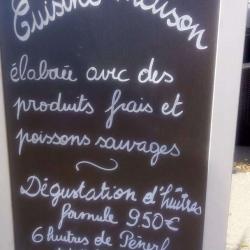 Cuisine Maison
élaborée avec des
produits frais et
poissons sauvages
Dégustation d'huîtres
formule 9.50€
6 huitres de Pénerf